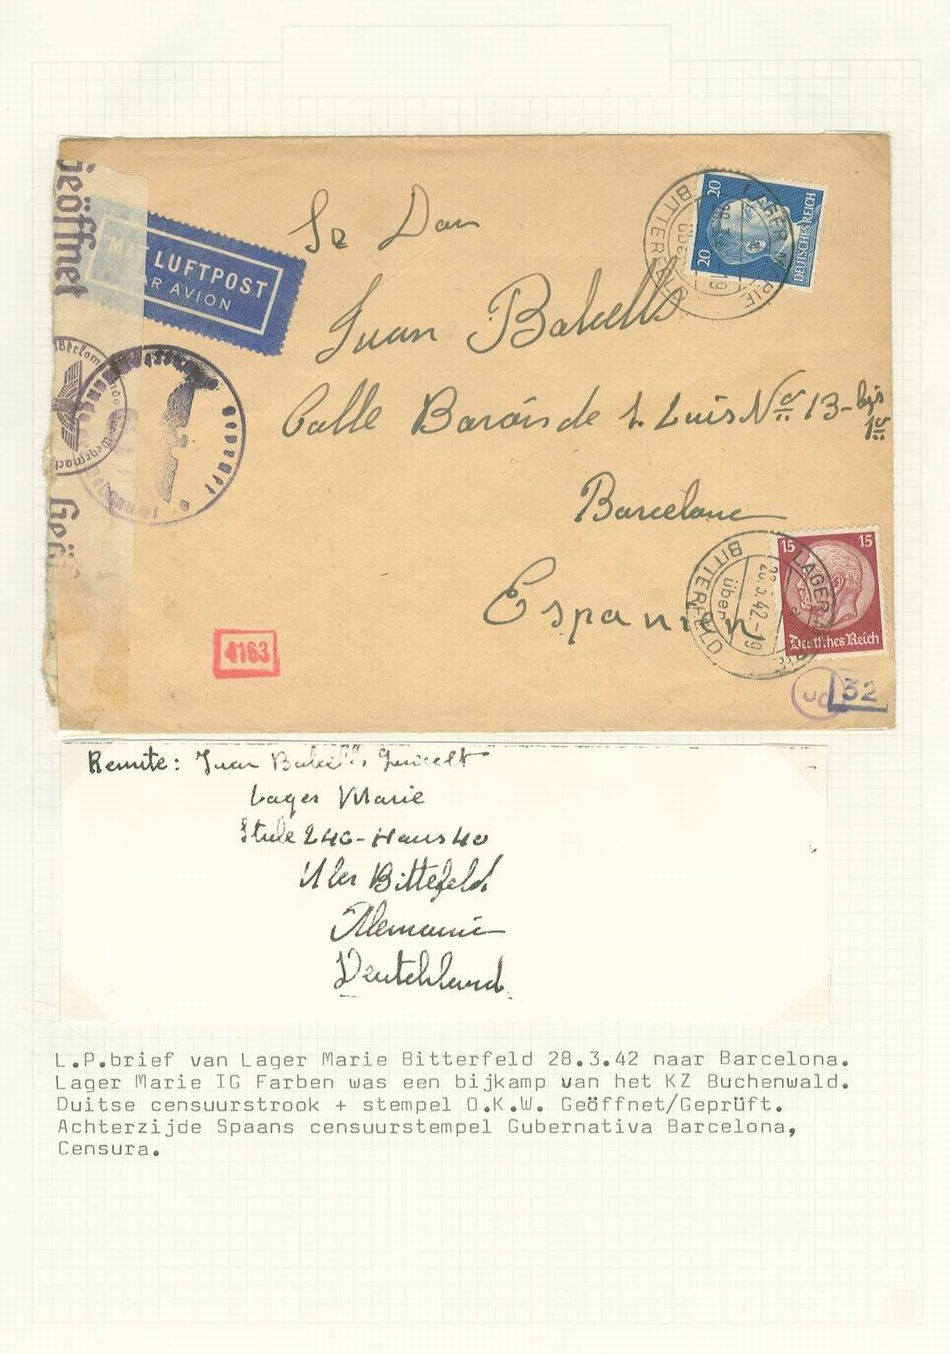 Geöffnet
MIT LUFTPOST
PAR AVION
Sr Don
Juan Batells
Calle Baróis de S. Luis Nº 13-bjs
1º
Barcelona
Espanien
20
20
DEUTSCHES REICH
LAGER MARIE
über
BITTERFELD
28.3.42-19
15 15
Deutsches Reich
LAGER MARIE
über
BITTERFELD
28.3.42-19
Oberkommando der Wehrmacht
Geprüft
Geö
4163
32
Remite: Juan
Lager Marie
Stule 246-Haus 40
Uber Bittefeld
Alemania
Deutchland.
L.P.brief van Lager Marie Bitterfeld 28.3.42 naar Barcelona.
Lager Marie IG Farben was een bijkamp van het KZ Buchenwald.
Duitse censuurstrook + stempel O.K.W. Geöffnet/Geprüft.
Achterzijde Spaans censuurstempel Gubernativa Barcelona,
Censura.